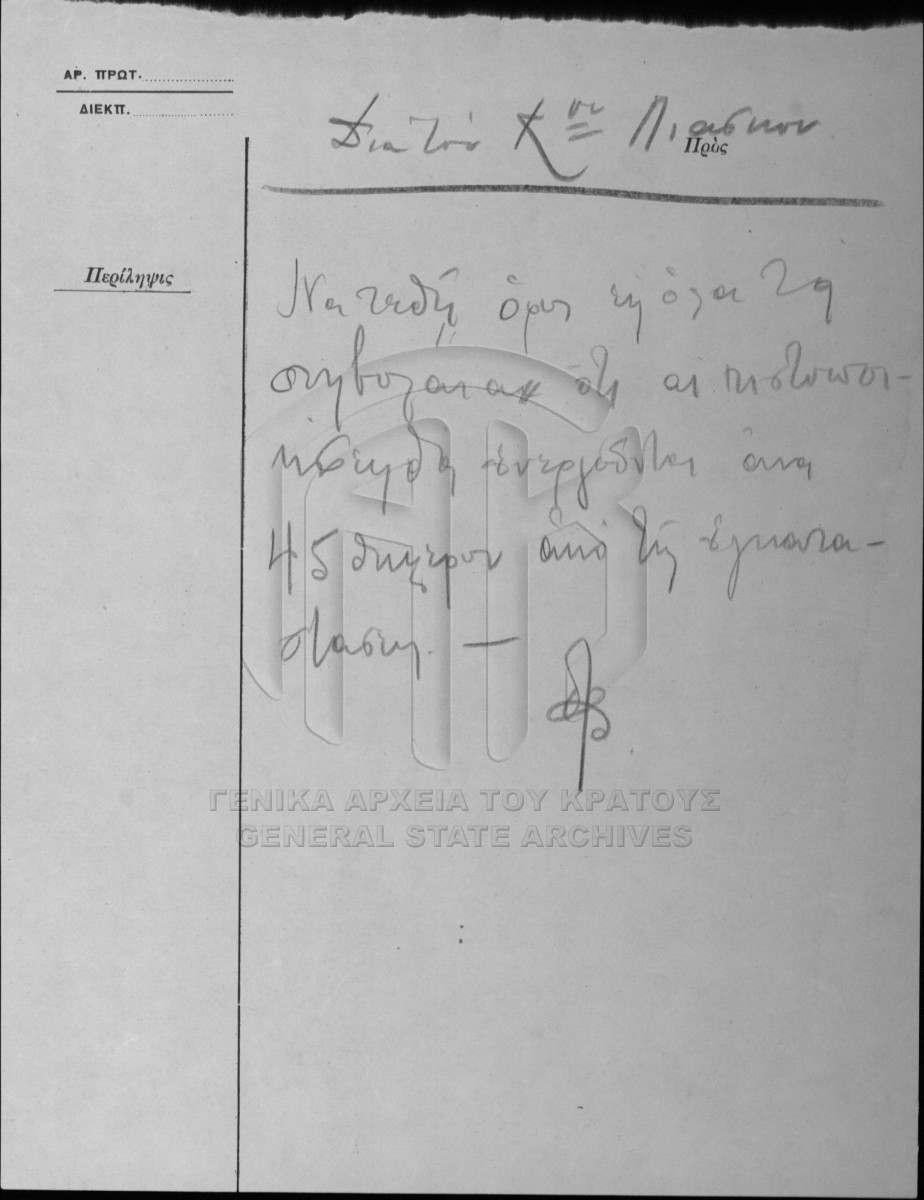 ΑΡ. ΠΡΩΤ.
ΔΙΕΚΠ.
Διὰ τὸν Κον Λιάσκον
Πρὸς
Περίληψις
Νὰ τεθῇ ὅρος εἰς ὅλα τὰ
συμβόλαια ὅτι αἱ πιστοποι-
ήσεις θὰ ἐνεργοῦνται ἀνὰ
45θήμερον ἀπὸ τῆς ἐγκατα-
στάσεως. —
ΓΕΝΙΚΑ ΑΡΧΕΙΑ ΤΟΥ ΚΡΑΤΟΥΣ
GENERAL STATE ARCHIVES